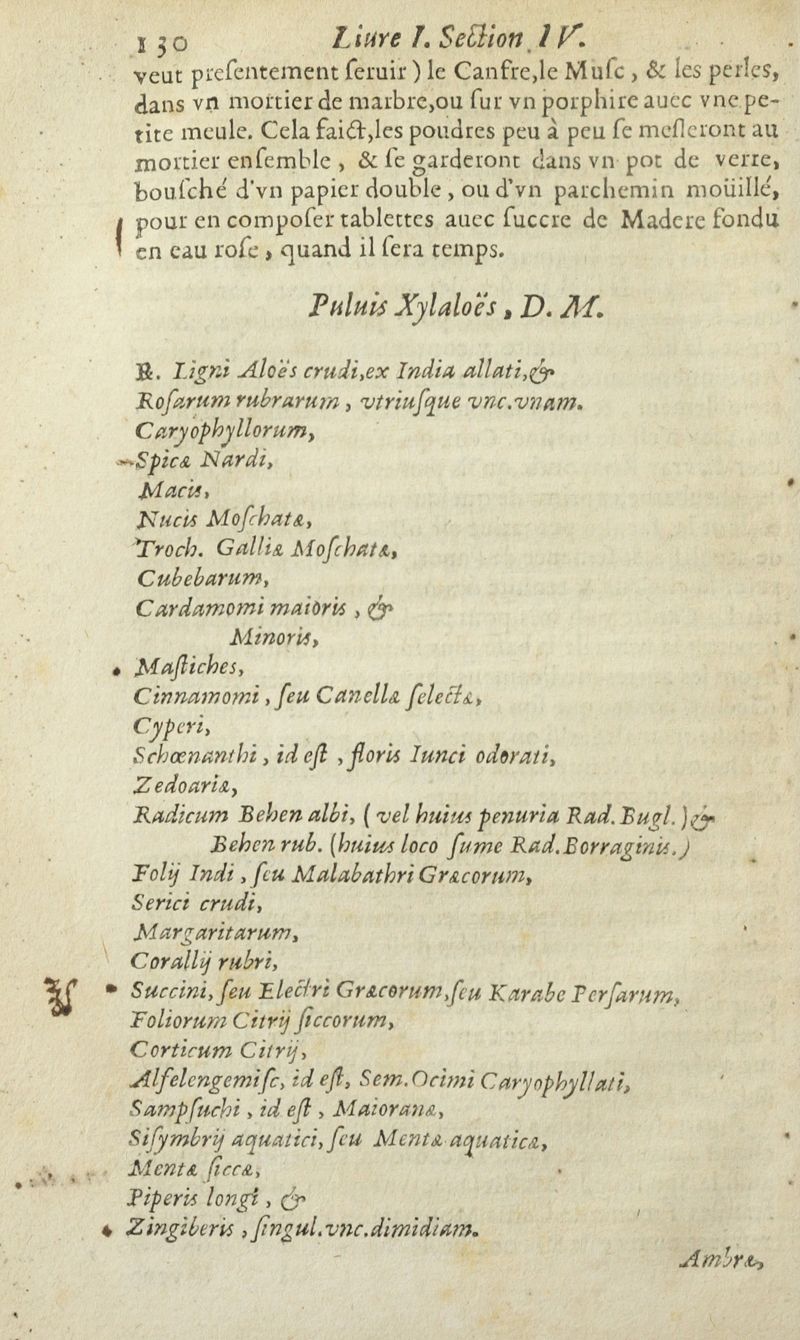 130 Liure I. Section. IV.
veut preſentement ſeruir ) le Canfre,le Muſc , & les perles,
dans vn mortier de marbre,ou ſur vn porphire auec vne pe-
tite meule. Cela faict,les poudres peu à peu ſe meſleront au
mortier enſemble , & ſe garderont dans vn pot de verre,
bouſché d'vn papier double , ou d'vn parchemin moüillé,
pour en compoſer tablettes auec ſuccre de Madere fondu
en eau roſe , quand il ſera temps.
Puluis Xylaloës , D. M.
℞. Ligni Aloës crudi,ex India allati,&
Roſarum rubrarum , vtriuſque vnc.vnam.
Caryophyllorum,
Spicæ Nardi,
Macis,
Nucis Moſchatæ,
Troch. Galliæ Moſchatæ,
Cubebarum,
Cardamomi maioris , &
Minoris,
Maſtiches,
Cinnamomi , ſeu Canellæ ſelectæ,
Cyperi,
Schœnanthi , id eſt , floris Iunci odorati,
Zedoariæ,
Radicum Behen albi, ( vel huius penuria Rad. Bugl. )&
Behen rub. (huius loco ſume Rad.Borraginis.)
Folij Indi , ſeu Malabathri Græcorum,
Serici crudi,
Margaritarum,
Corallij rubri,
Succini, ſeu Electri Græcorum,ſeu Karabe Perſarum,
Foliorum Citrij ſiccorum,
Corticum Citrij,
Alfelengemiſc, id eſt, Sem. Ocimi Caryophyllati,
Sampſuchi , id eſt , Maioranæ,
Siſymbrij aquatici, ſeu Mentæ aquaticæ,
Mentæ ſiccæ,
Piperis longi , &
Zingiberis , ſingul.vnc.dimidiam.
Ambræ,